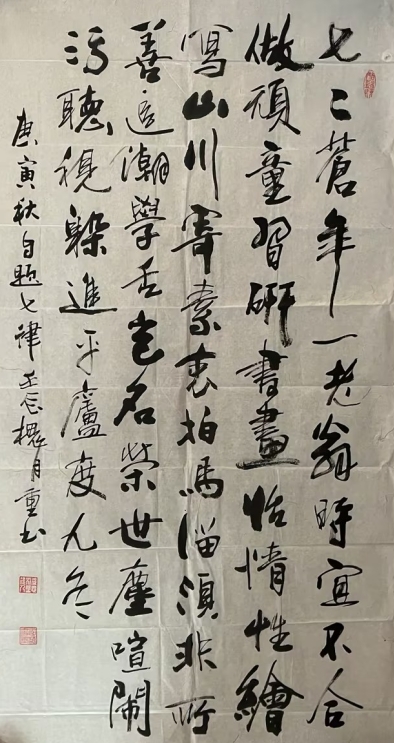 七二蒼年一老翁時宜不合
做頑童習研書畫怡情性繪
寫山川寄素衷拍馬溜須非所
善追潮學舌豈名榮世塵喧鬧
污聽視躲進平廬度九冬
庚寅秋自題七律壬辰槐月重書